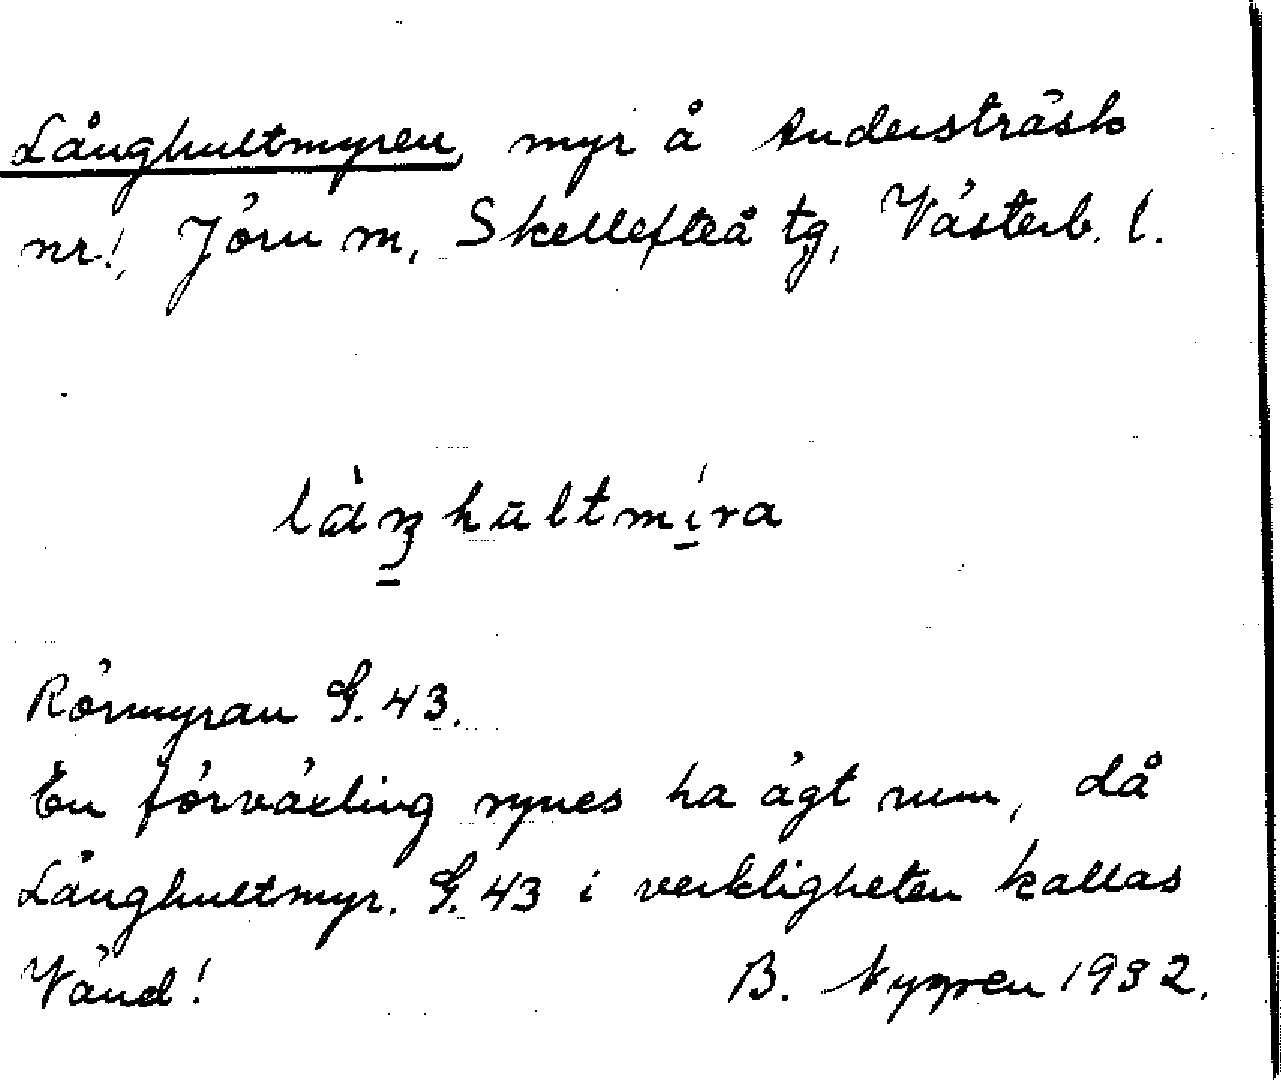 Långhultmyren, myr å Andersträsk
nr!, Jörn m, Skellefteå tg, Västerb. l.
låŋhultmíra
Rörmyran G. 43.
En förväxling synes ha ägt rum, då
Långhultmyr. G. 43 i verkligheten kallas
Vänd! B. Nygren 1932.